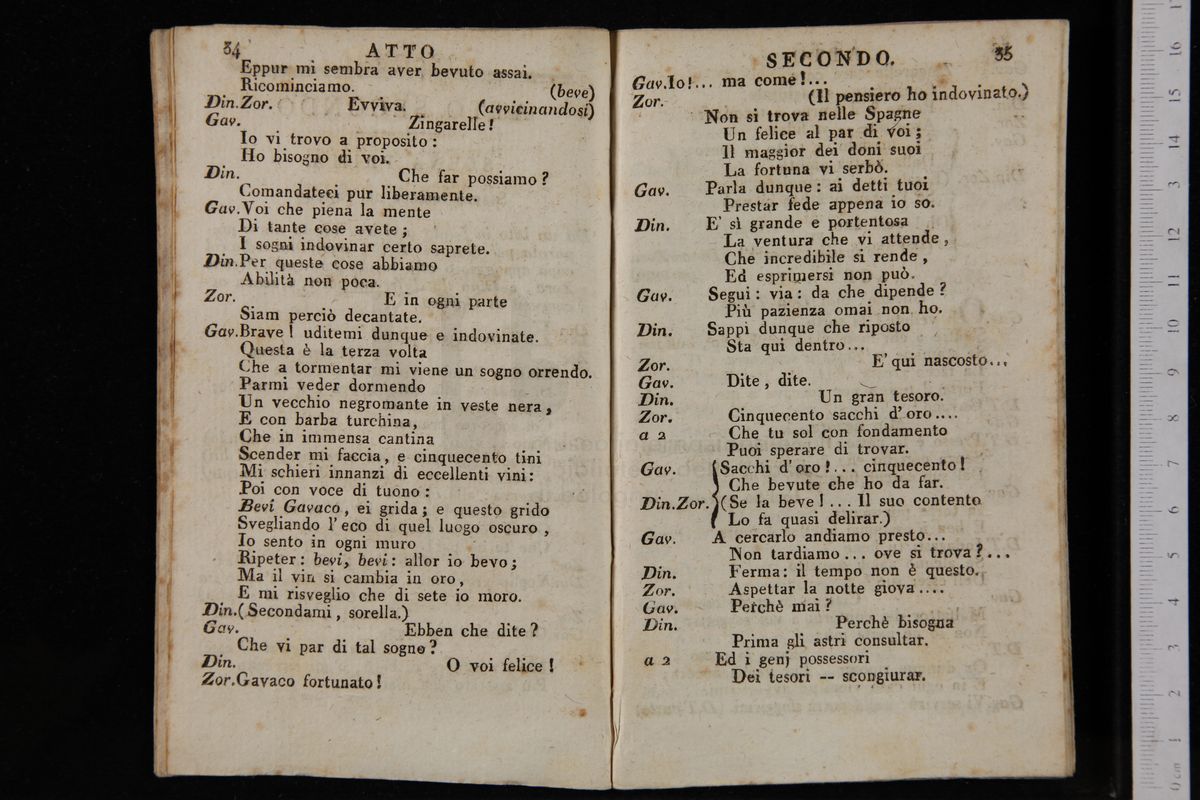 34 ATTO
Eppur mi sembra aver bevuto assai.
Ricominciamo. (beve)
Din.Zor. Evviva. (avvicinandosi)
Gav. Zingarelle!
Io vi trovo a proposito:
Ho bisogno di voi.
Din. Che far possiamo?
Comandateci pur liberamente.
Gav.Voi che piena la mente
Di tante cose avete;
I sogni indovinar certo saprete.
Din.Per queste cose abbiamo
Abilità non poca.
Zor. E in ogni parte
Siam perciò decantate.
Gav.Brave! uditemi dunque e indovinate.
Questa è la terza volta
Che a tormentar mi viene un sogno orrendo.
Parmi veder dormendo
Un vecchio negromante in veste nera,
E con barba turchina,
Che in immensa cantina
Scender mi faccia, e cinquecento tini
Mi schieri innanzi di eccellenti vini:
Poi con voce di tuono:
Bevi Gavaco, ei grida; e questo grido
Svegliando l'eco di quel luogo oscuro,
Io sento in ogni muro
Ripeter: bevi, bevi: allor io bevo;
Ma il vin si cambia in oro,
E mi risveglio che di sete io moro.
Din.(Secondami, sorella.)
Gav. Ebben che dite?
Che vi par di tal sogno?
Din. O voi felice!
Zor.Gavaco fortunato!
SECONDO. 35
Gav.Io!... ma come!...
Zor. (Il pensiero ho indovinato.)
Non si trova nelle Spagne
Un felice al par di voi;
Il maggior dei doni suoi
La fortuna vi serbò.
Gav. Parla dunque: ai detti tuoi
Prestar fede appena io so.
Din. E' sì grande e portentosa
La ventura che vi attende,
Che incredibile si rende,
Ed esprimersi non può.
Gav. Segui: via: da che dipende?
Più pazienza omai non ho.
Din. Sappi dunque che riposto
Sta qui dentro...
Zor. E' qui nascosto...
Gav. Dite, dite.
Din. Un gran tesoro.
Zor. Cinquecento sacchi d'oro....
a 2 Che tu sol con fondamento
Puoi sperare di trovar.
Gav. Sacchi d'oro!... cinquecento!
Che bevute che ho da far.
Din.Zor. (Se la beve!... Il suo contento
Lo fa quasi delirar.)
Gav. A cercarlo andiamo presto...
Non tardiamo... ove si trova?...
Din. Ferma: il tempo non è questo.
Zor. Aspettar la notte giova....
Gav. Perchè mai?
Din. Perchè bisogna
Prima gli astri consultar.
a 2 Ed i genj possessori
Dei tesori -- scongiurar.
0 cm 1 2 3 4 5 6 7 8 9 10 11 12 13 14 15 16